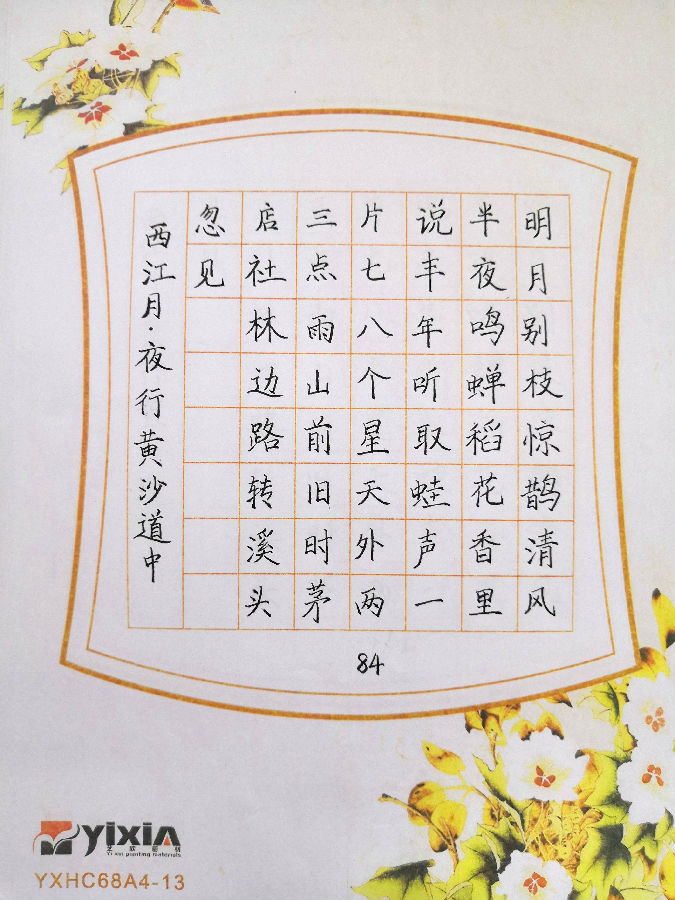 明月别枝惊鹊清风
半夜鸣蝉稻花香里
说丰年听取蛙声一
片七八个星天外两
三点雨山前旧时茅
店社林边路转溪头
忽见
西江月·夜行黄沙道中
84
yixin
艺欣印材
Yi xin painting materials
YXHC68A4-13